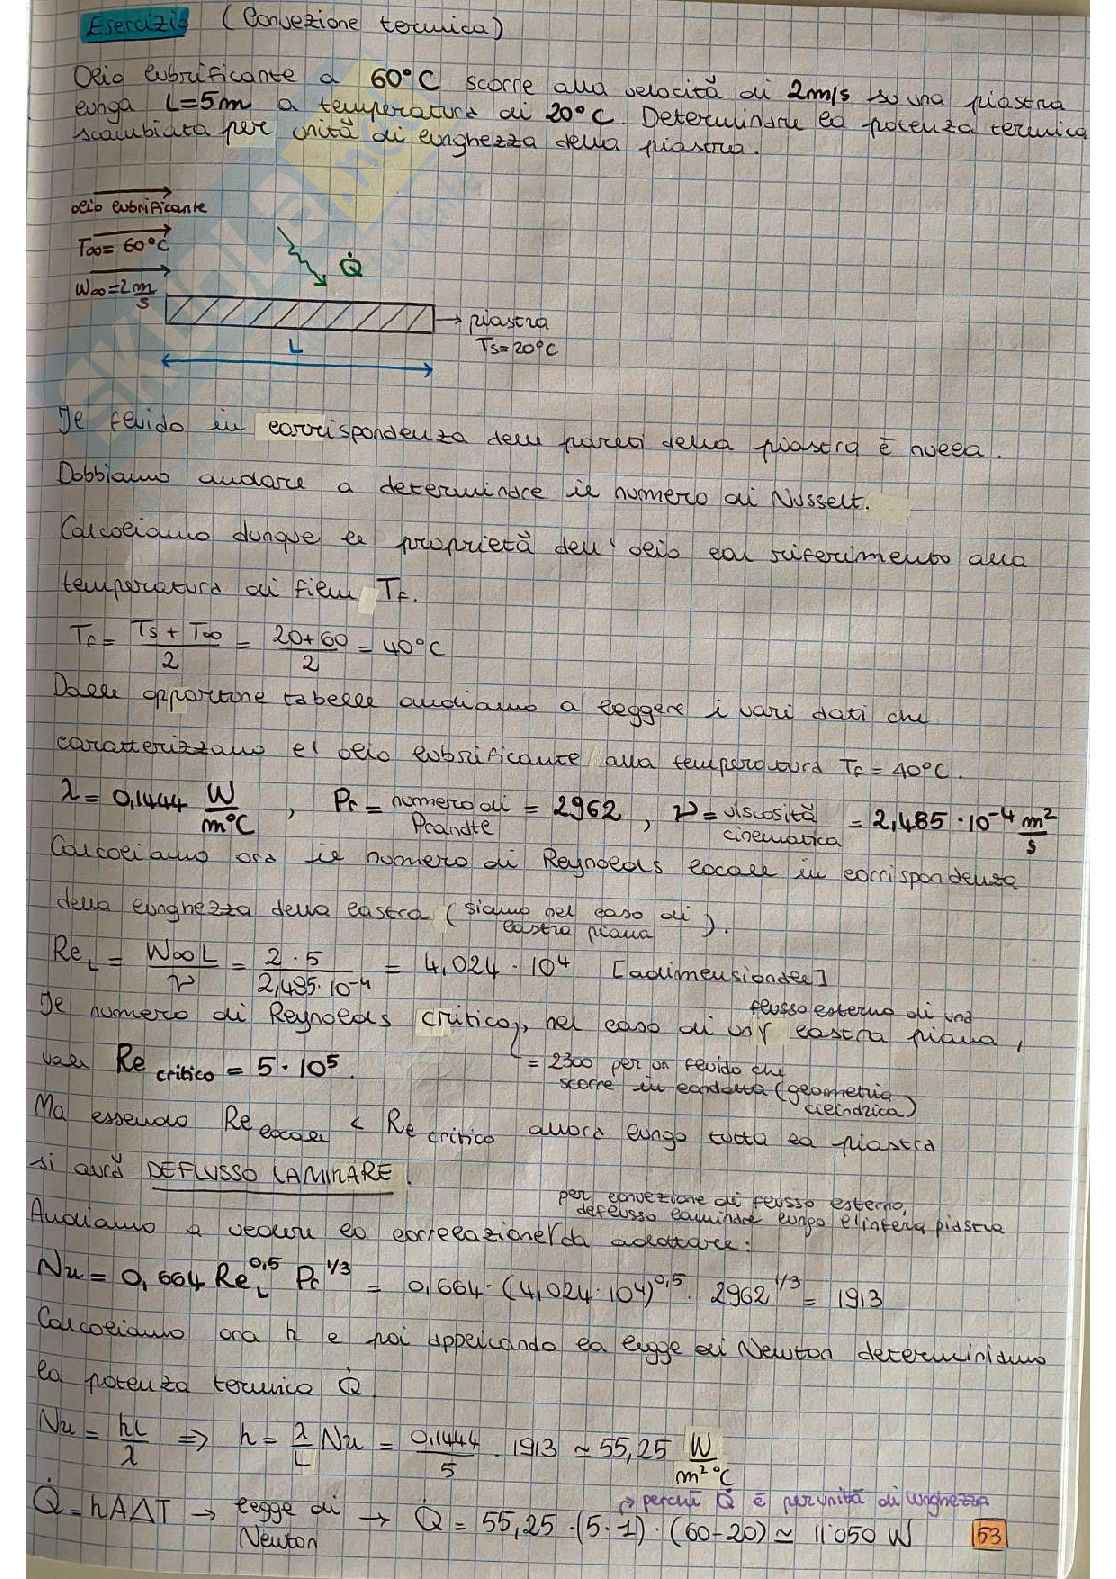 Esercizio (Convezione termica)
Olio lubrificante a 60°C scorre alla velocità di 2m/s su una piastra
lunga L=5m a temperatura di 20°C. Determinare la potenza termica
scambiata per unità di lunghezza della piastra.
olio lubrificante
T∞= 60°C
W∞=2 m/s
Q̇
piastra
Ts=20°C
L
Il fluido in corrispondenza delle pareti della piastra è nulla.
Dobbiamo andare a determinare il numero di Nusselt.
Calcoliamo dunque le proprietà dell'olio con riferimento alla
temperatura di film Tf.
Tf = (Ts + T∞)/2 = (20+60)/2 = 40°C
Dalle opportune tabelle andiamo a leggere i vari dati che
caratterizzano l'olio lubrificante alla temperatura Tf = 40°C.
λ = 0,1444 W/m°C , Pr = numero di Prandtl = 2962 , ν = viscosità cinematica = 2,485·10⁻⁴ m²/s
Calcoliamo ora il numero di Reynolds locale in corrispondenza
della lunghezza della lastra (siamo nel caso di lastra piana).
Re_L = W∞L/ν = 2·5/2,485·10⁻⁴ = 4,024·10⁴ [adimensionale]
Il numero di Reynolds critico, nel caso di flusso esterno di una lastra piana,
vale Re critico = 5·10⁵.
= 2300 per un fluido che
scorre in condotta (geometria
cilindrica)
Ma essendo Re locale < Re critico allora lungo tutta la piastra
si avrà DEFLUSSO LAMINARE.
per convezione di flusso esterno,
deflusso laminare lungo l'intera piastra
Andiamo a vedere la correlazione da adottare:
Nu = 0,664 Re_L^0,5 Pr^1/3 = 0,664·(4,024·10⁴)^0,5 · 2962^1/3 = 1913
Calcoliamo ora h e poi applicando la legge di Newton determiniamo
la potenza termica Q̇.
Nu = hL/λ ⇒ h = λ/L Nu = 0,1444/5 · 1913 ≃ 55,25 W/m²°C
perchè Q̇ è per unità di lunghezza
Q̇ = hAΔT → legge di Newton → Q̇ = 55,25·(5·1)·(60-20) ≃ 11'050 W
53